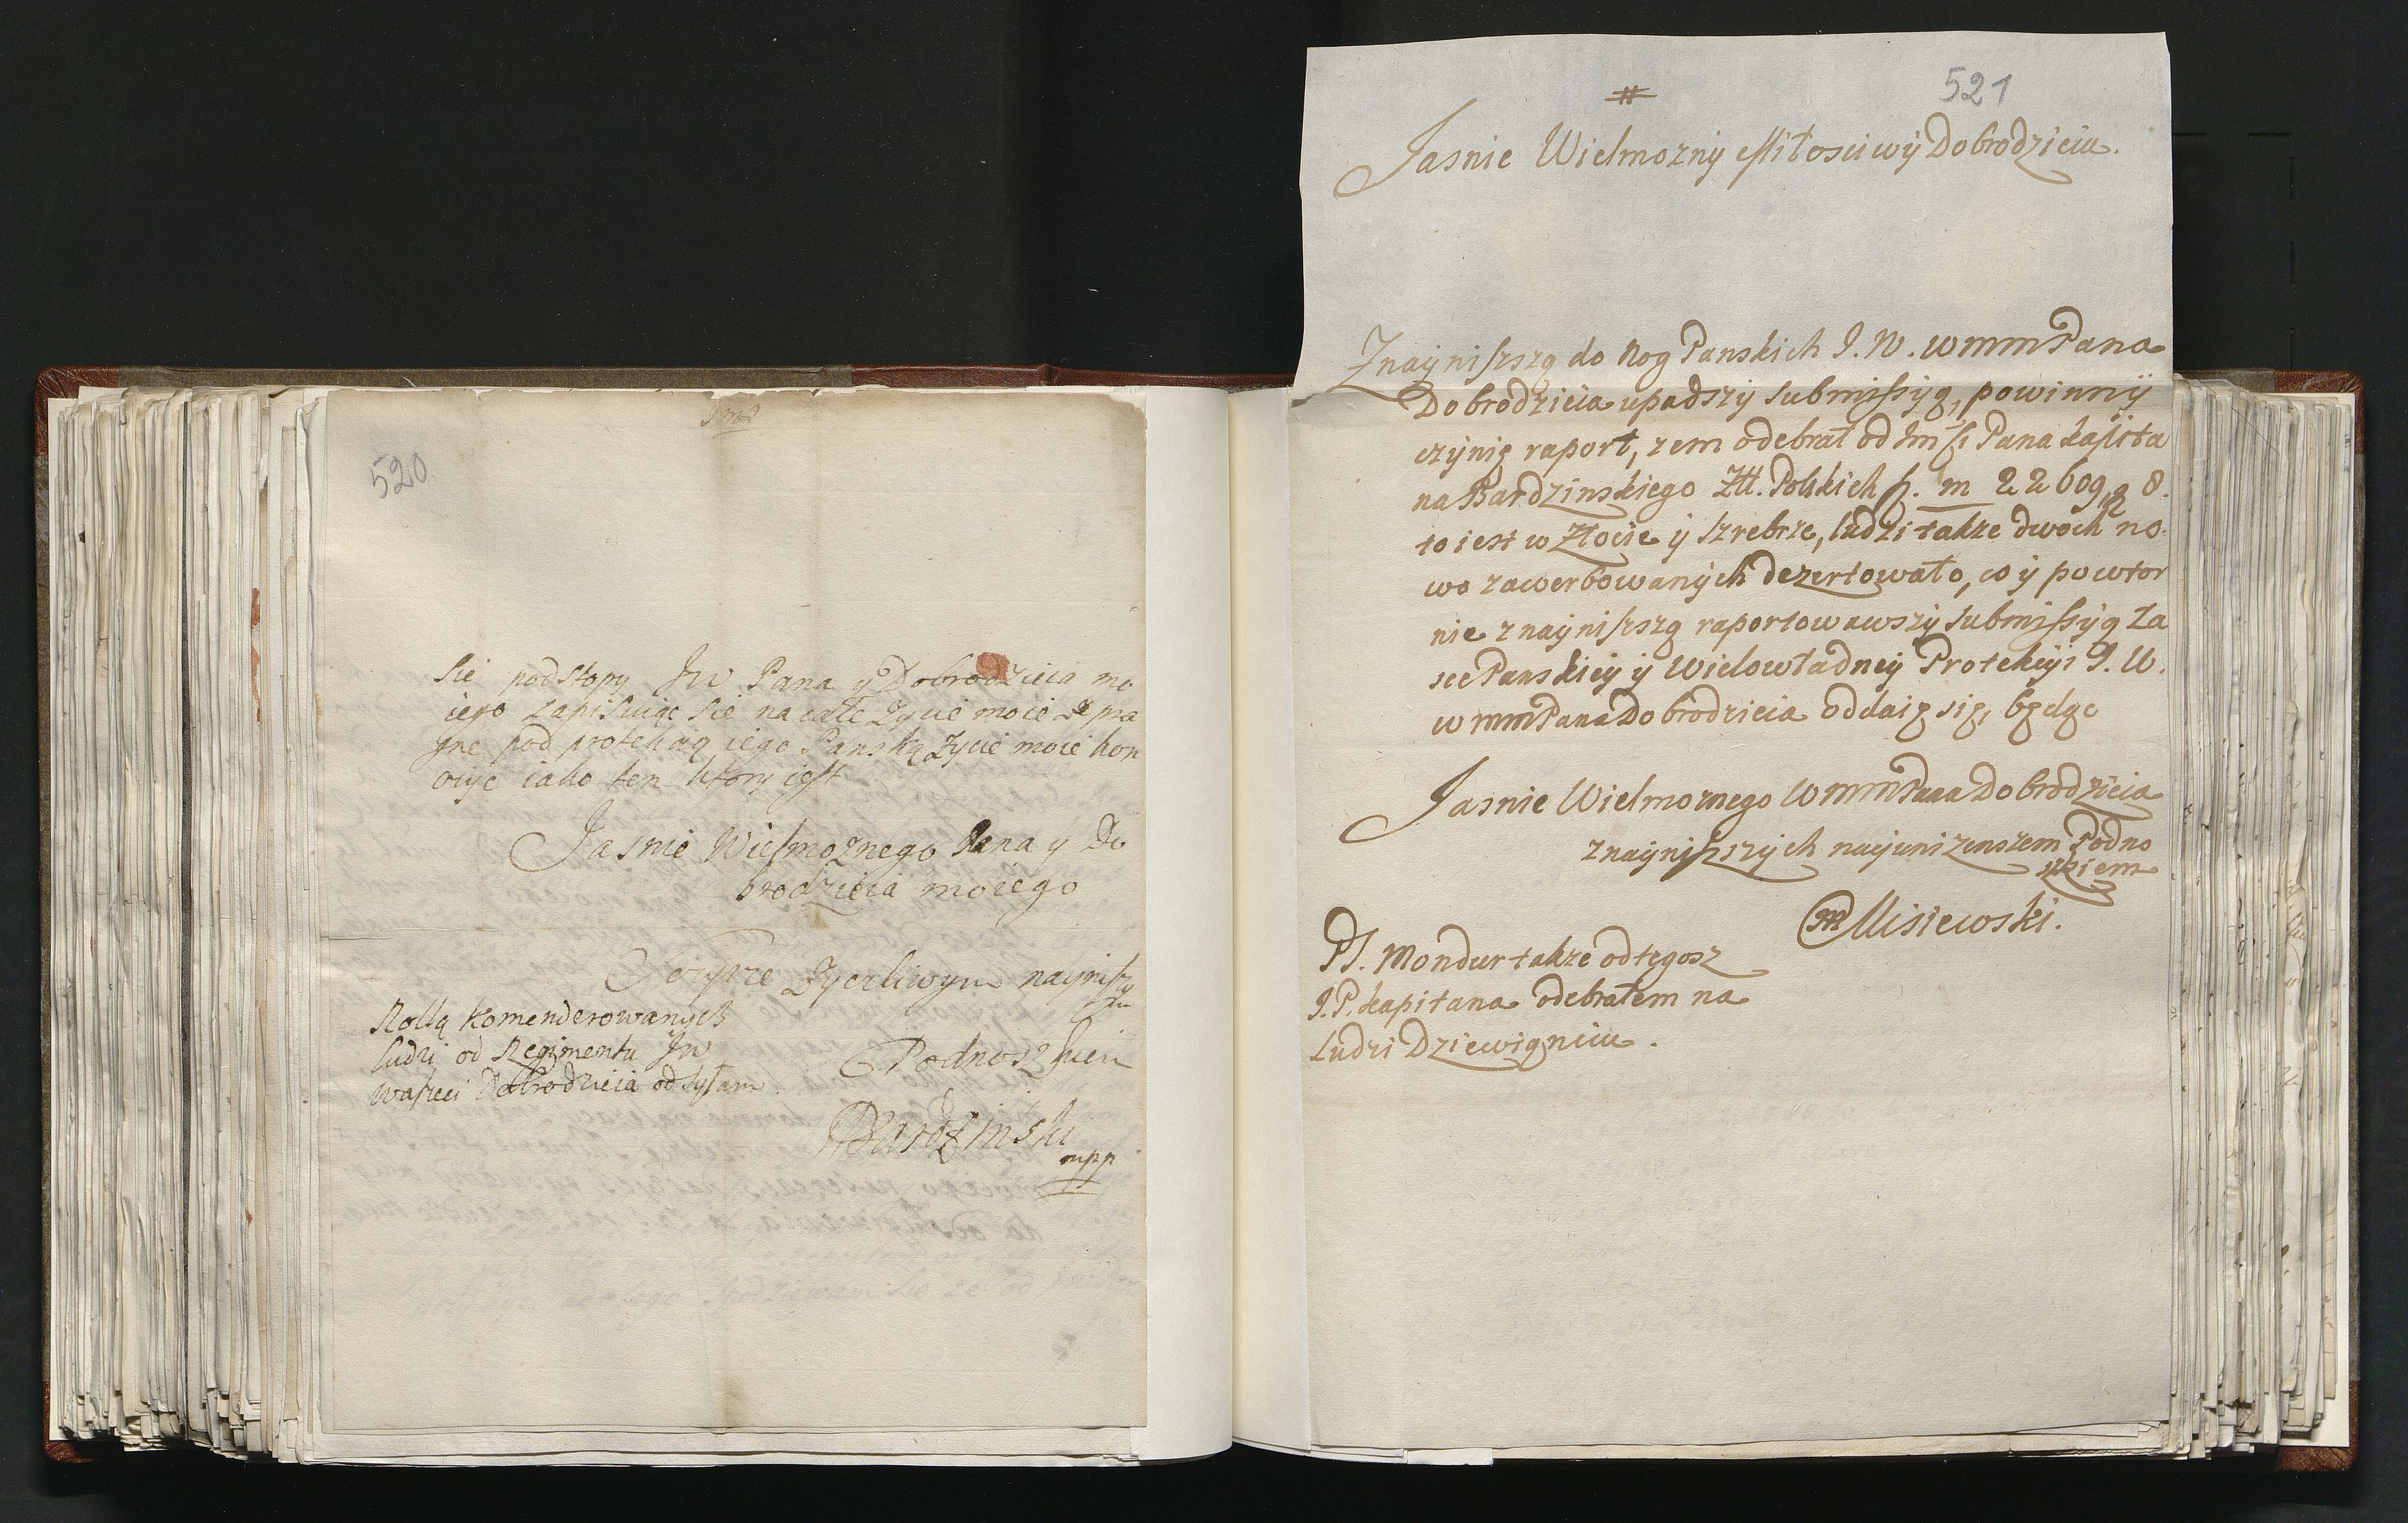 520
Sie pod stopy Jw Pana y Dobrodzieia mo
iego zapisuiąc sie na całe zycie moie ze pra
gne pod protekcią iego Panską zycie moie kon
czyc iako ten ktory jest
Jasnie Wielmoznego Pana y Do
brodzieia moiego
Szczyrze Zyczliwym nayniszy
m
Rollą Komenderowanych
ludzi od Regimentu Jw
waszeci Dobrodzieia odsyłam
Podnoszkiem
Bardzinski
mpp
521
Jasnie Wielmozny Miłosciwy Dobrodzieiu.
Znayniszszą do Nog Panskich J. W. wmmPana
Dobrodzieia upadszy submissyą, powinny
czynię raport, zem odebrał od Jm Pana kapita
na Bardzinskiego Złł. Polskich 22609, 8.
to iest w Złocie y szrebrze, ludzi takze dwoch no
wo zawerbowanych dezertowało, co y powtor
nie znayniszszą raportowawszy submissyą ła
sce Panskiey y Wielowładney Protekcyi J. W.
wmmPana Dobrodzieia oddaię się, będąc
Jasnie Wielmoznego WmmPana Dobrodzieia
znayniszszych nayunizenszem Podno
szkiem
Misiewski.
PS. Mondur takze odtegosz
J. P. kapitana odebrałem na
Ludzi Dziewięnciu.